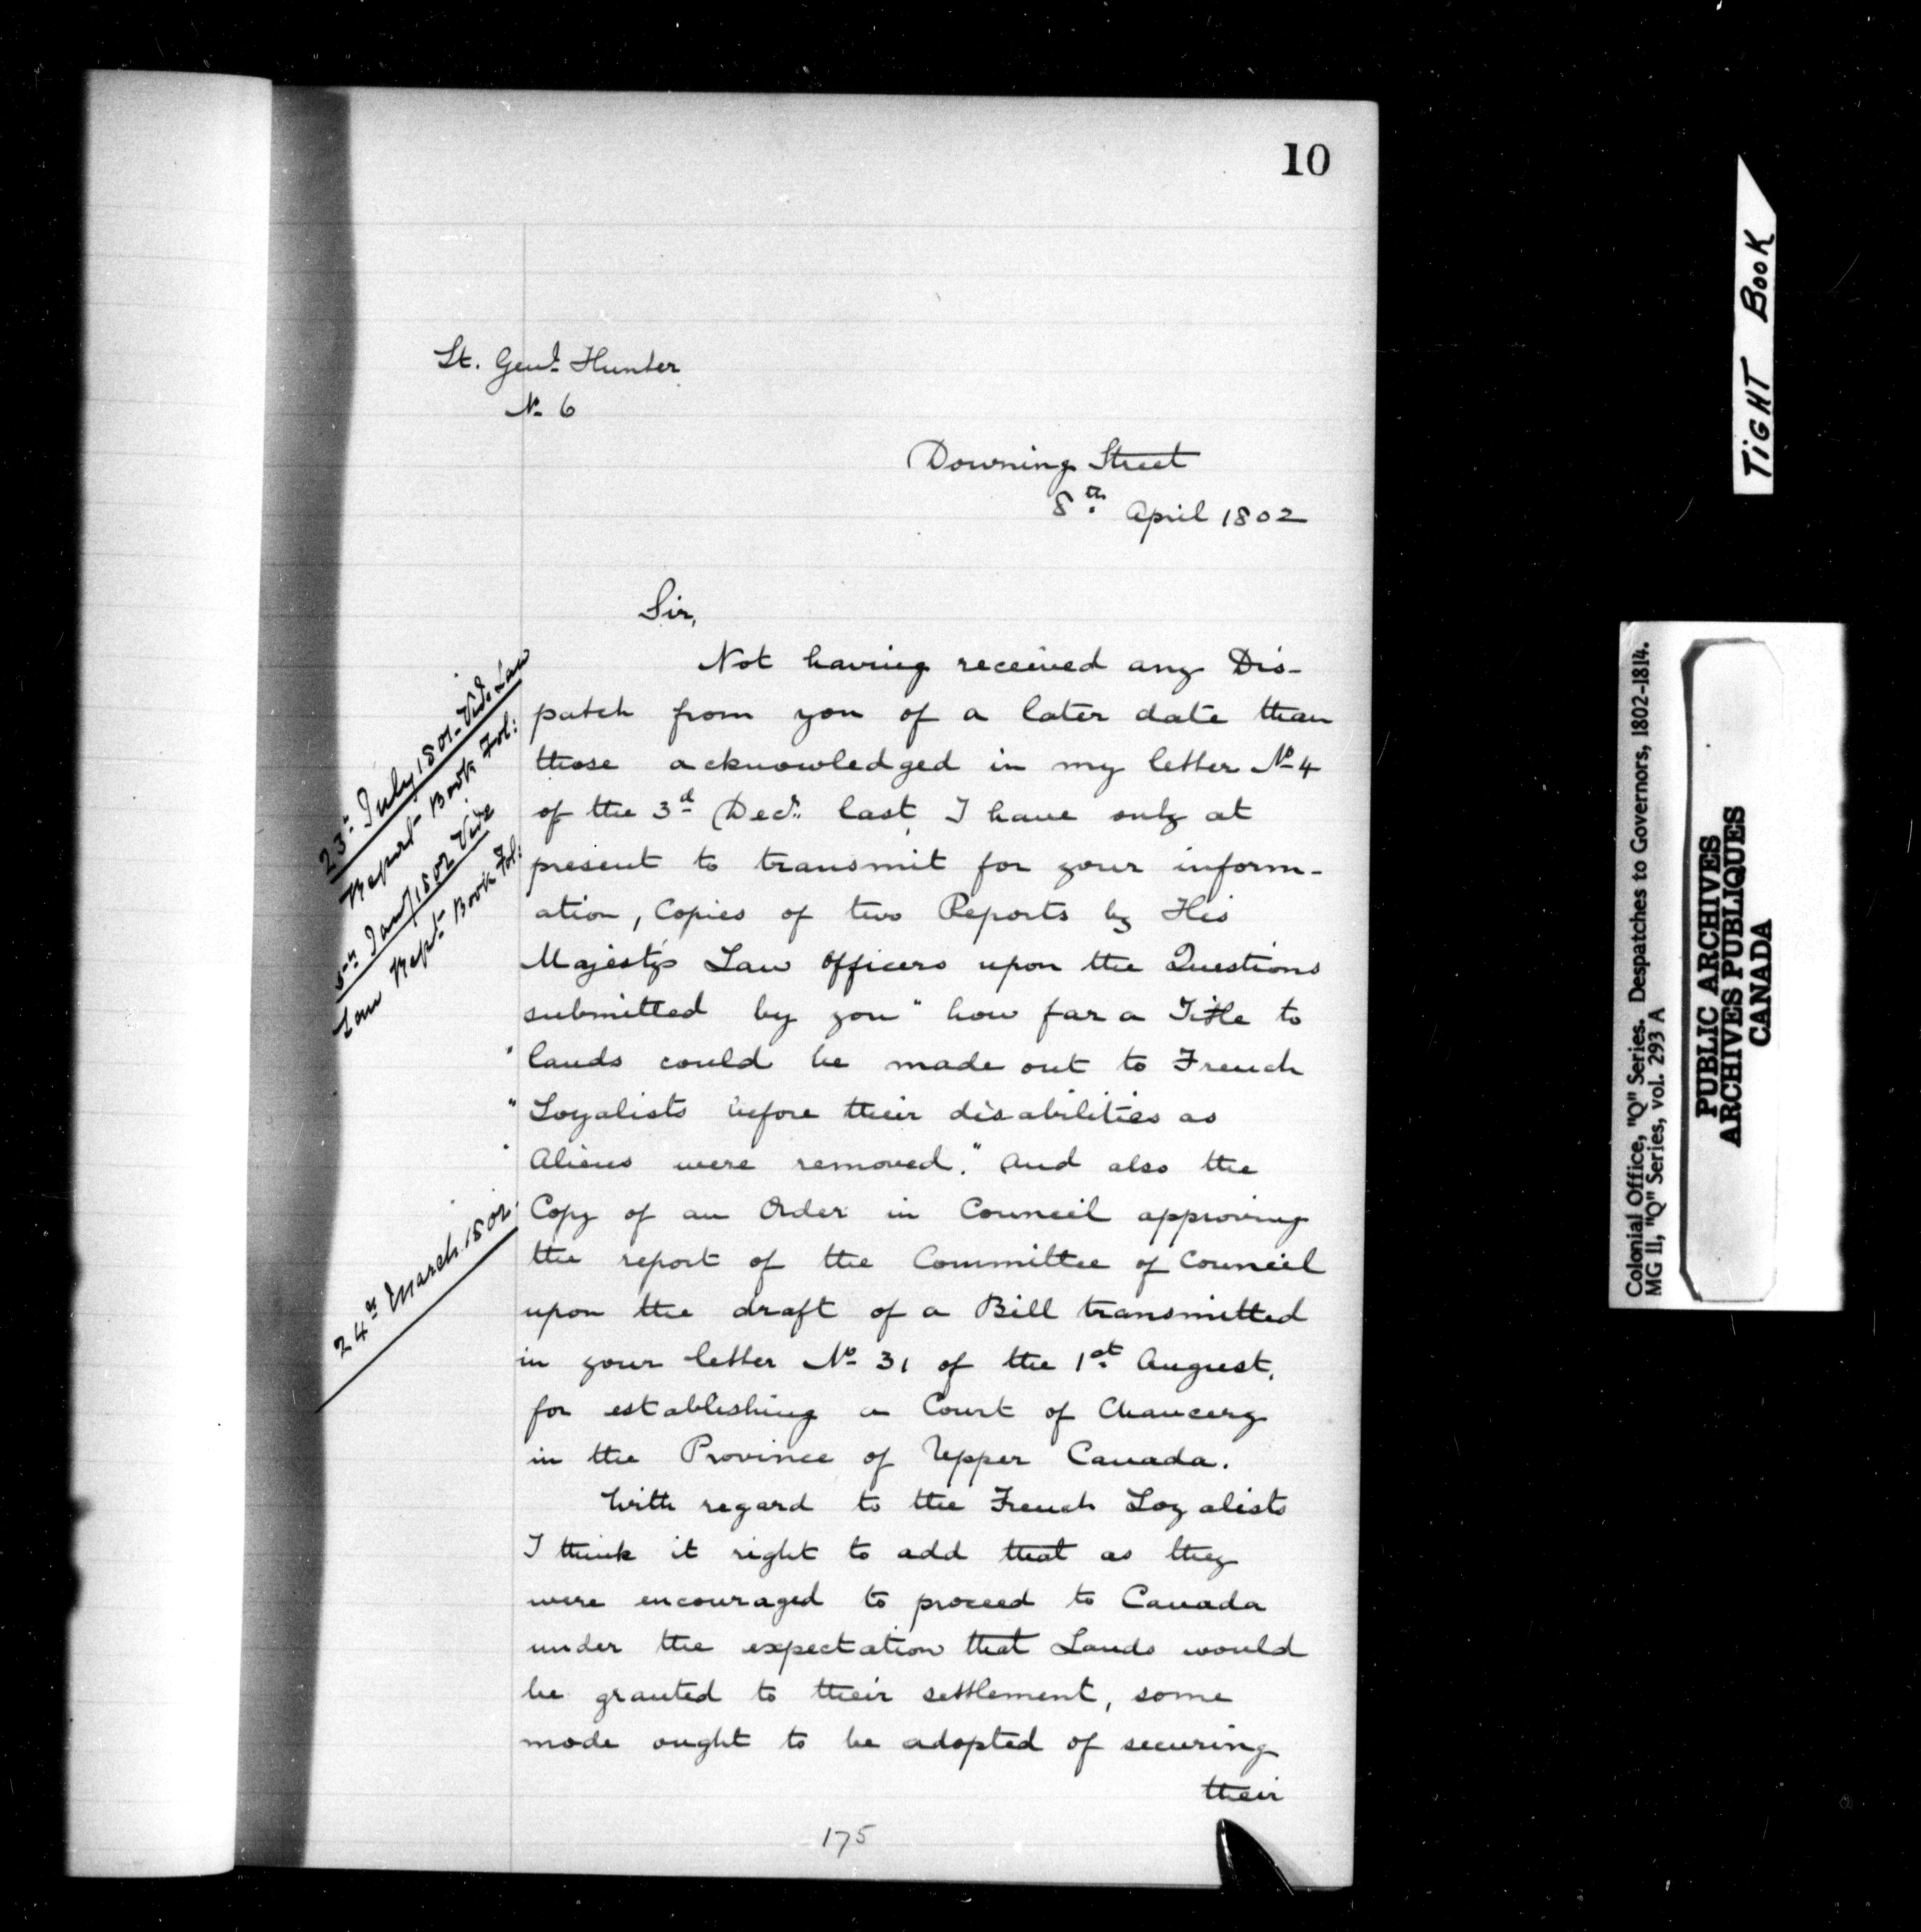 10
Lt. Genl. Hunter
No 6
Downing Street
8th. April 1802
Sir,
Not having received any Dis-
patch from you of a later date than
those acknowledged in my letter No 4
of the 3d Decr. last, I have only at
present to transmit for your inform-
ation, Copies of two Reports by His
Majesty's Law Officers upon the Questions
submitted by you "how far a Title to
"lands could be made out to French
"Loyalists before their disabilities as
"Aliens were removed." And also the
Copy of an Order in Council approving
the report of the Committee of Council
upon the draft of a Bill transmitted
in your letter No 31 of the 1st. August,
for establishing a Court of Chancery
in the Province of Upper Canada.
With regard to the French Loyalists
I think it right to add that as they
were encouraged to proceed to Canada
under the expectation that Lands would
be granted to their settlement, some
mode ought to be adopted of securing
their
175
23d July 1801 - Vide Law
Report - Book Fol:
5th Jany 1802 Vide
Law Rept - Book Fol:
24th March 1802.
TIGHT BOOK
Colonial Office, "Q" Series. Despatches to Governors, 1802-1814.
MG 11, "Q" Series, vol. 293 A
PUBLIC ARCHIVES
ARCHIVES PUBLIQUES
CANADA